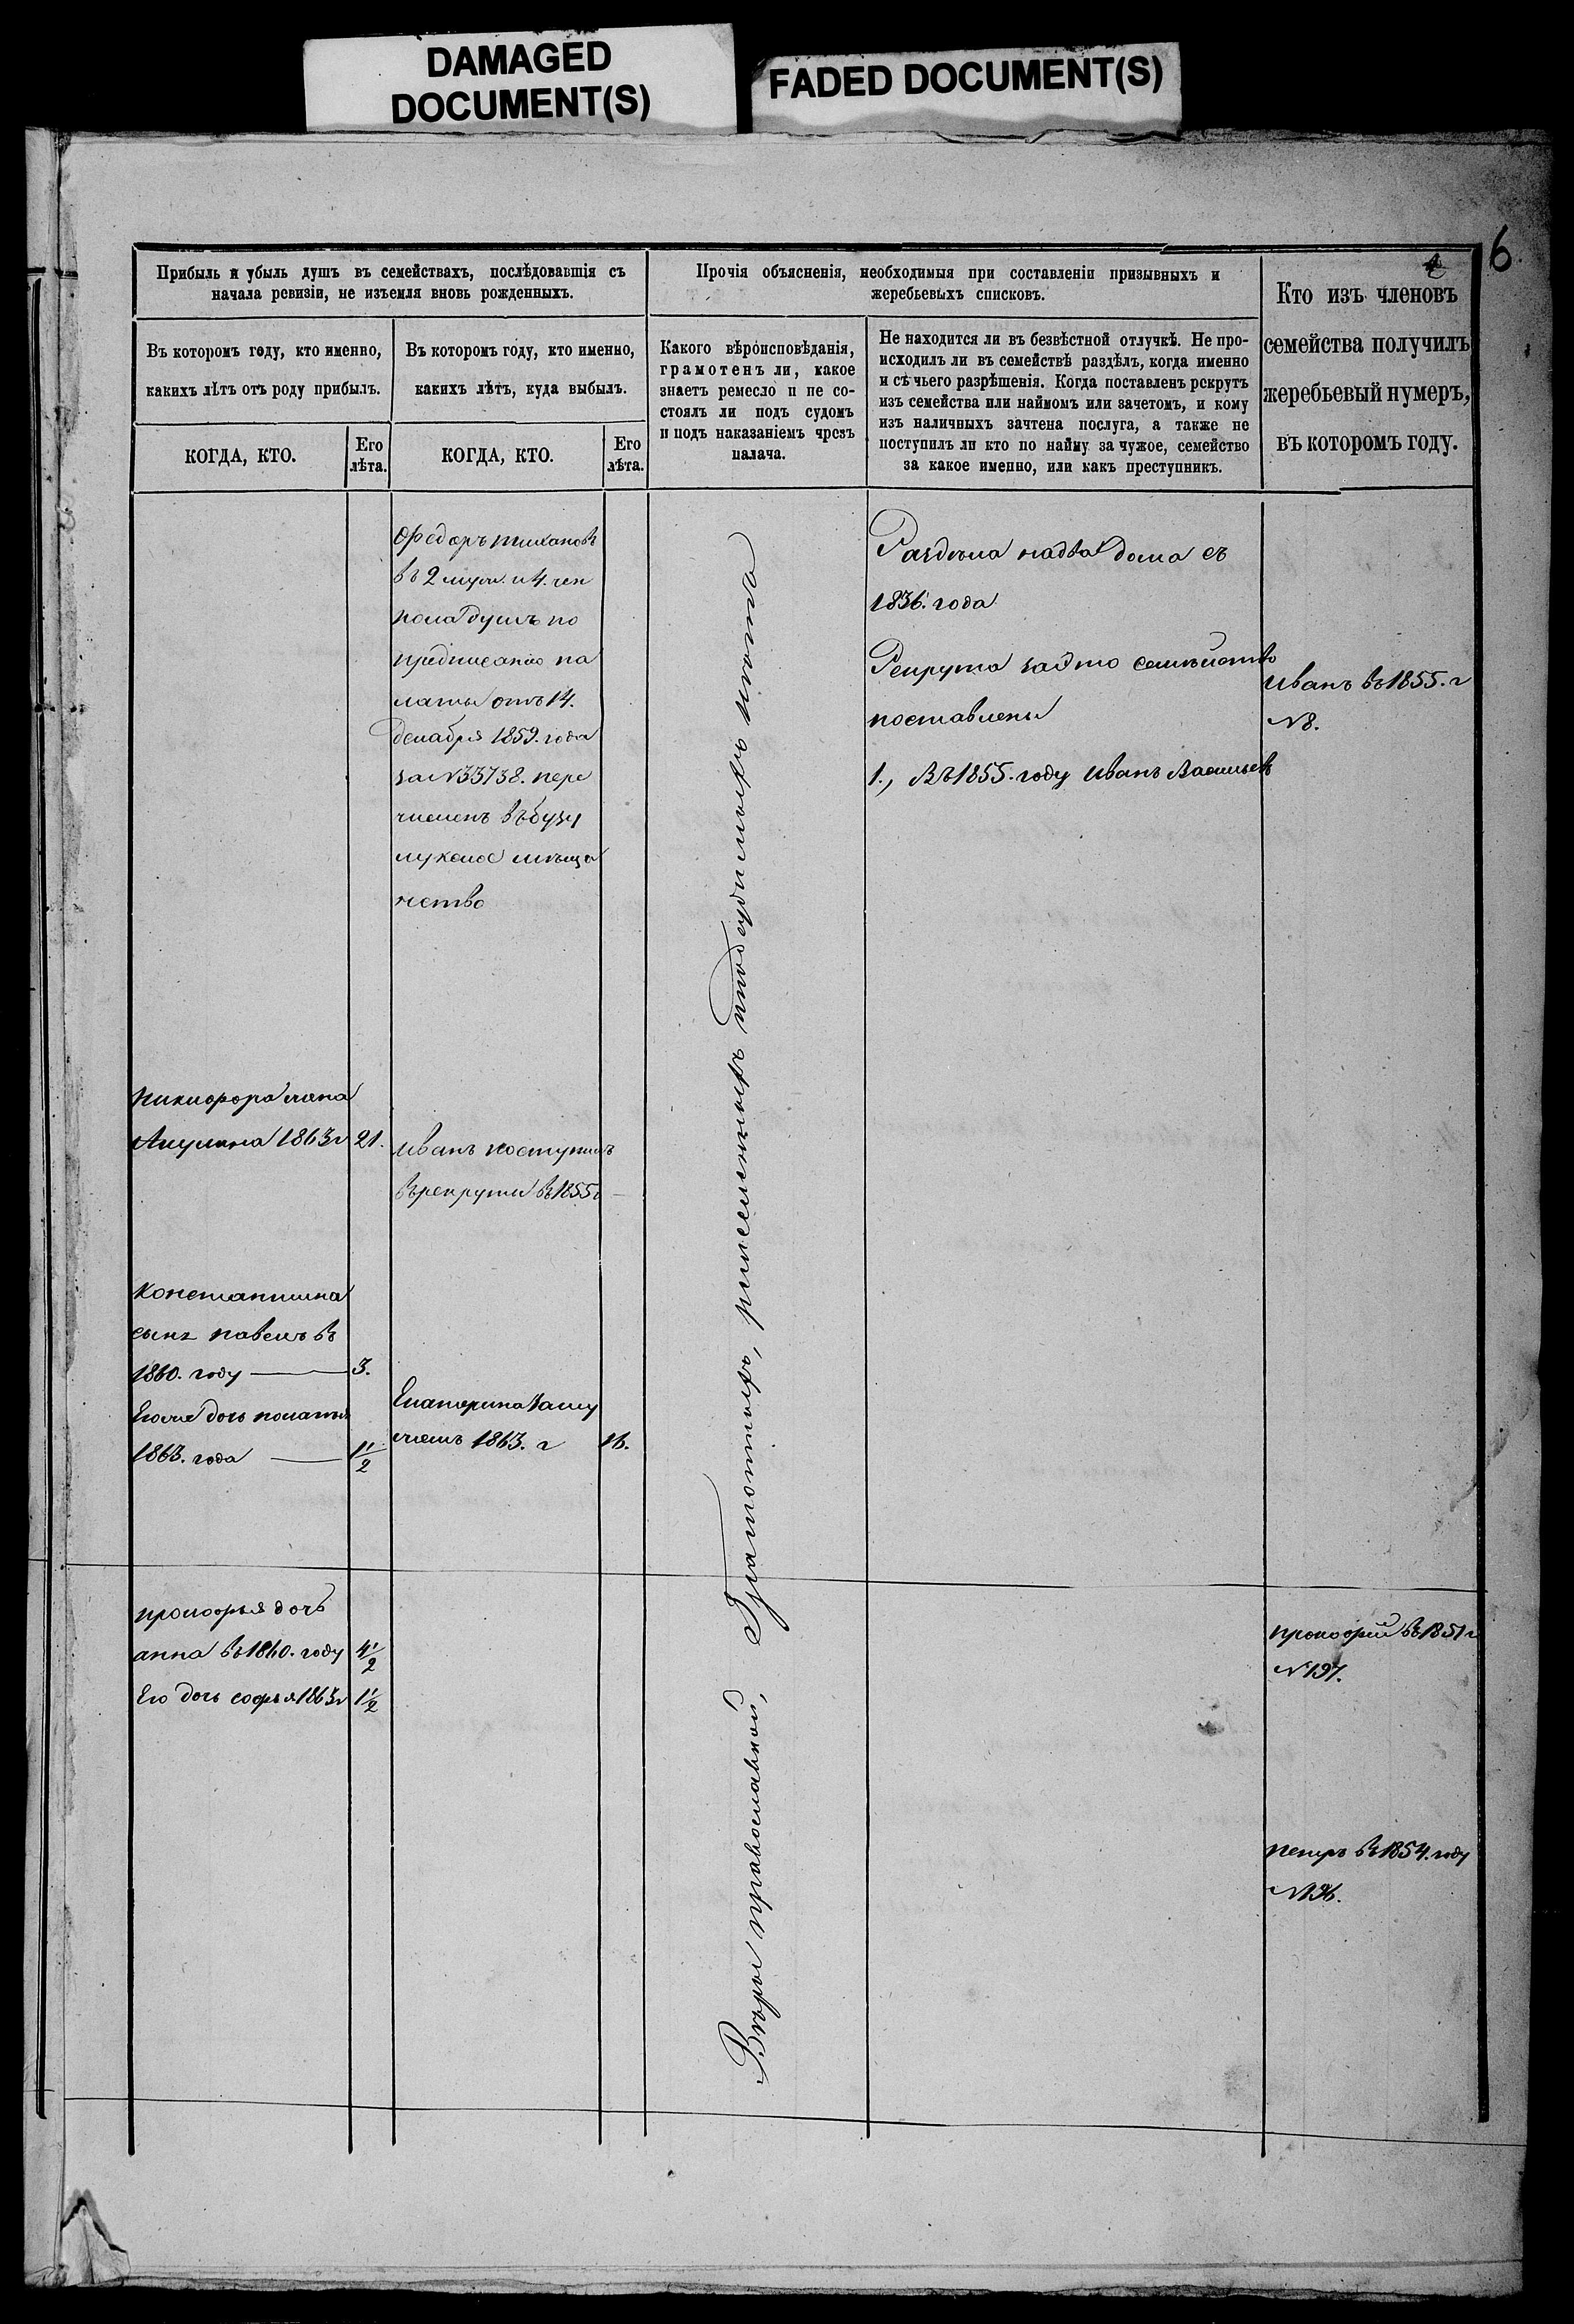 DAMAGED
DOCUMENT(S)
FADED DOCUMENT(S)
6.
Прибыль и убыль душъ въ семействахъ, послѣдовавшія съ
начала ревизіи, не изъемля вновь рожденныхъ.
Въ которомъ году, кто именно,
какихъ лѣтъ отъ роду прибылъ.
КОГДА, КТО.
Его
лѣта.
Въ которомъ году, кто именно,
какихъ лѣтъ, куда выбылъ.
КОГДА, КТО.
Его
лѣта.
Прочія объясненія, необходимыя при составленіи призывныхъ и
жеребьевыхъ списковъ.
Какого вѣроисповѣданія,
грамотенъ ли, какое
знаетъ ремесло и не со-
стоялъ ли подъ судомъ
и подъ наказаніемъ чрезъ
палача.
Не находится ли въ безвѣстной отлучкѣ. Не про-
исходилъ ли въ семействѣ раздѣлъ, когда именно
и съ чьего разрѣшенія. Когда поставленъ рекрутъ
изъ семейства или наймомъ или зачетомъ, и кому
изъ наличныхъ зачтена послуга, а также не
поступилъ ли кто по найму за чужое, семейство
за какое именно, или какъ преступникъ.
Кто изъ членовъ
семейства получилъ
жеребьевый нумеръ,
въ которомъ году.
Никифора жена
Акулина 1863 г 21.
Константина
сынъ павелъ въ
1860. году — 3.
Егоже дочь
1863. года — 1 1/2
прокофья дочь
анна въ 1860. году 4 1/2
Его дочь софья 1863 г 1 1/2
Федоръ тихановъ
въ 2 муж. и 4. жен
пола душъ по
предписанію па
латы отъ 14.
декабря 1859. года
за № 33738. пере
численъ въ бузу
лукское мѣща
нство
Иванъ поступилъ
въ рекруты въ 1855 г
Екатерина Заму
жемъ 1863. г 16.
Вѣры православной, Грамотныхъ, ремесленныхъ подсудимыхъ
Раздѣла на два дома съ
1836. года
Рекрута за это семѣйство
поставлены
1., Въ 1855. году Иванъ Васильевъ
Иванъ въ 1855. г
№ 8.
прокофій въ 1851 г
№ 197.
петръ въ 1854. году
№ 196.